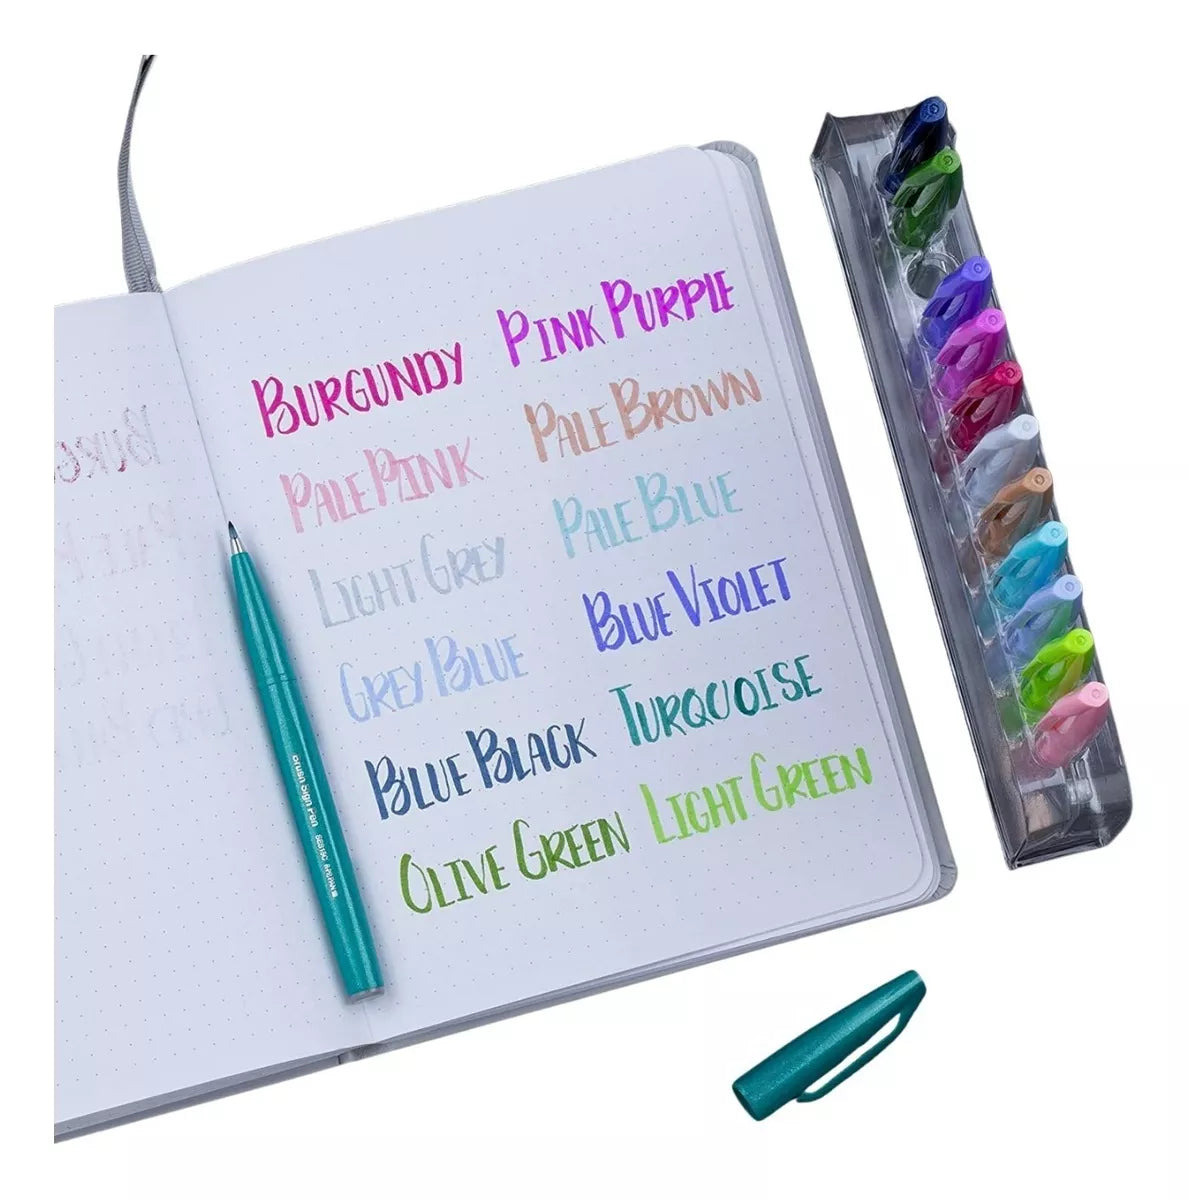 BURGUNDY
PINK PURPLE
PALE PINK
PALE BROWN
LIGHT GREY
PALE BLUE
GREY BLUE
BLUE VIOLET
BLUE BLACK
TURQUOISE
OLIVE GREEN
LIGHT GREEN
Brush Sign Pen